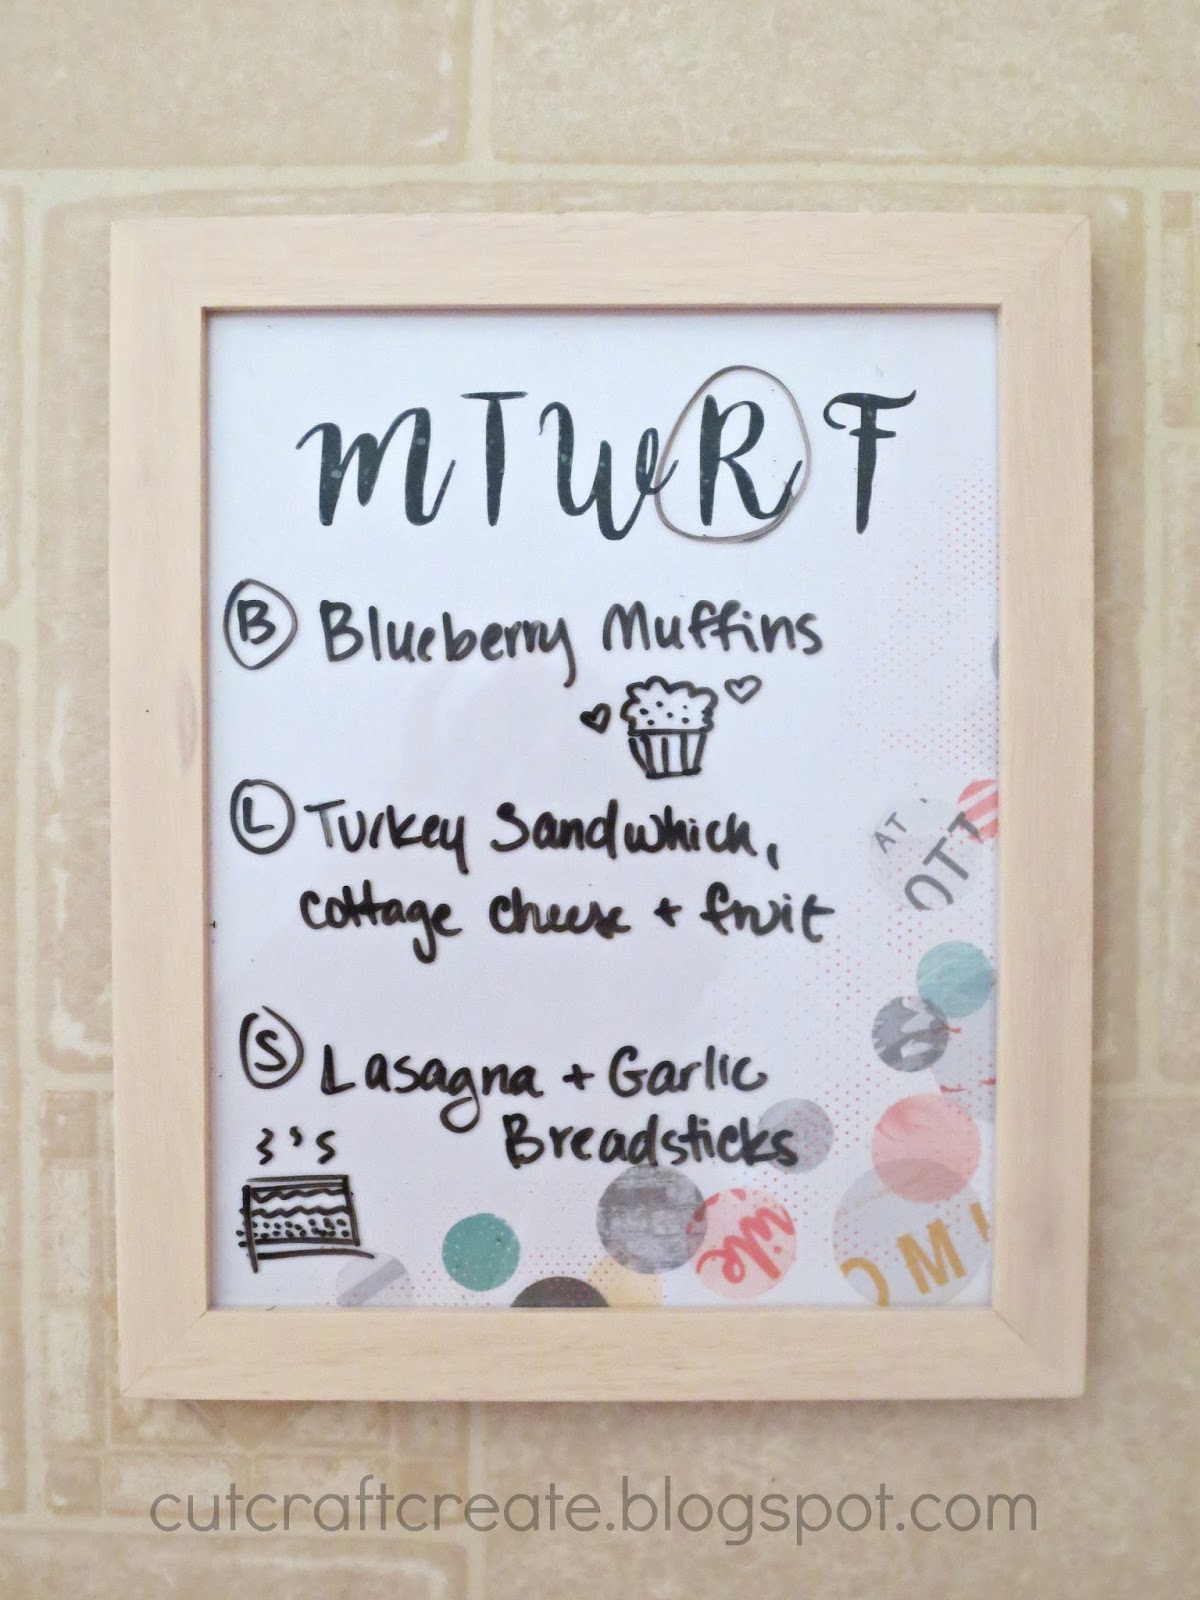 M T W R F
B Blueberry Muffins
L Turkey Sandwhich,
cottage cheese + fruit
S Lasagna + Garlic
Breadsticks
AT
OTT
ile
MC
cutcraftcreate.blogspot.com